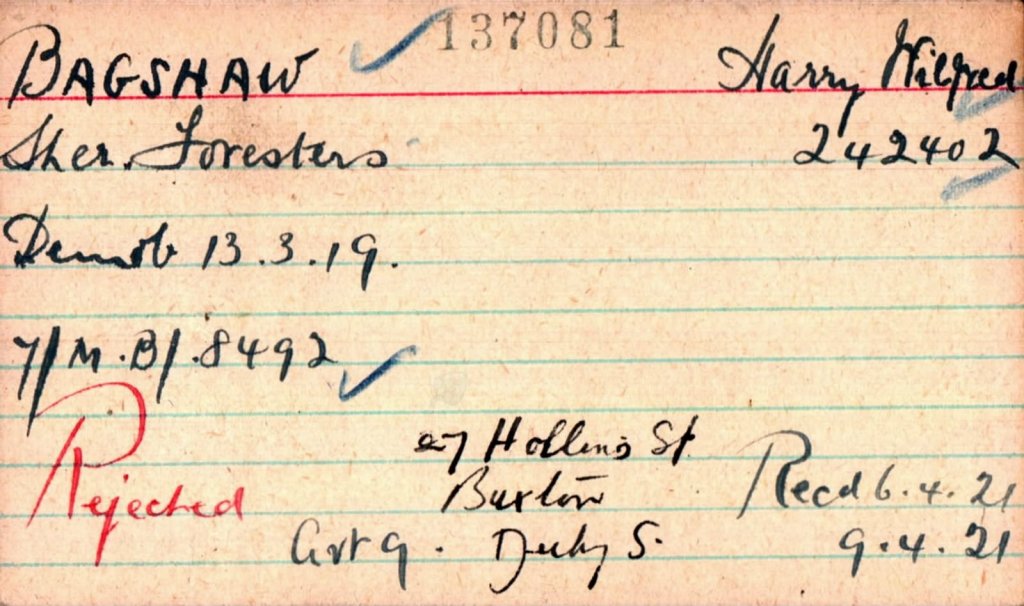 137081
BAGSHAW Harry Wilfred
Sher. Foresters 242402
Demob 13.3.19.
7/M.B/.8492
27 Hollins St
Rejected Buxton Recd 6.4.21
Art 9. Derbys. 9.4.21